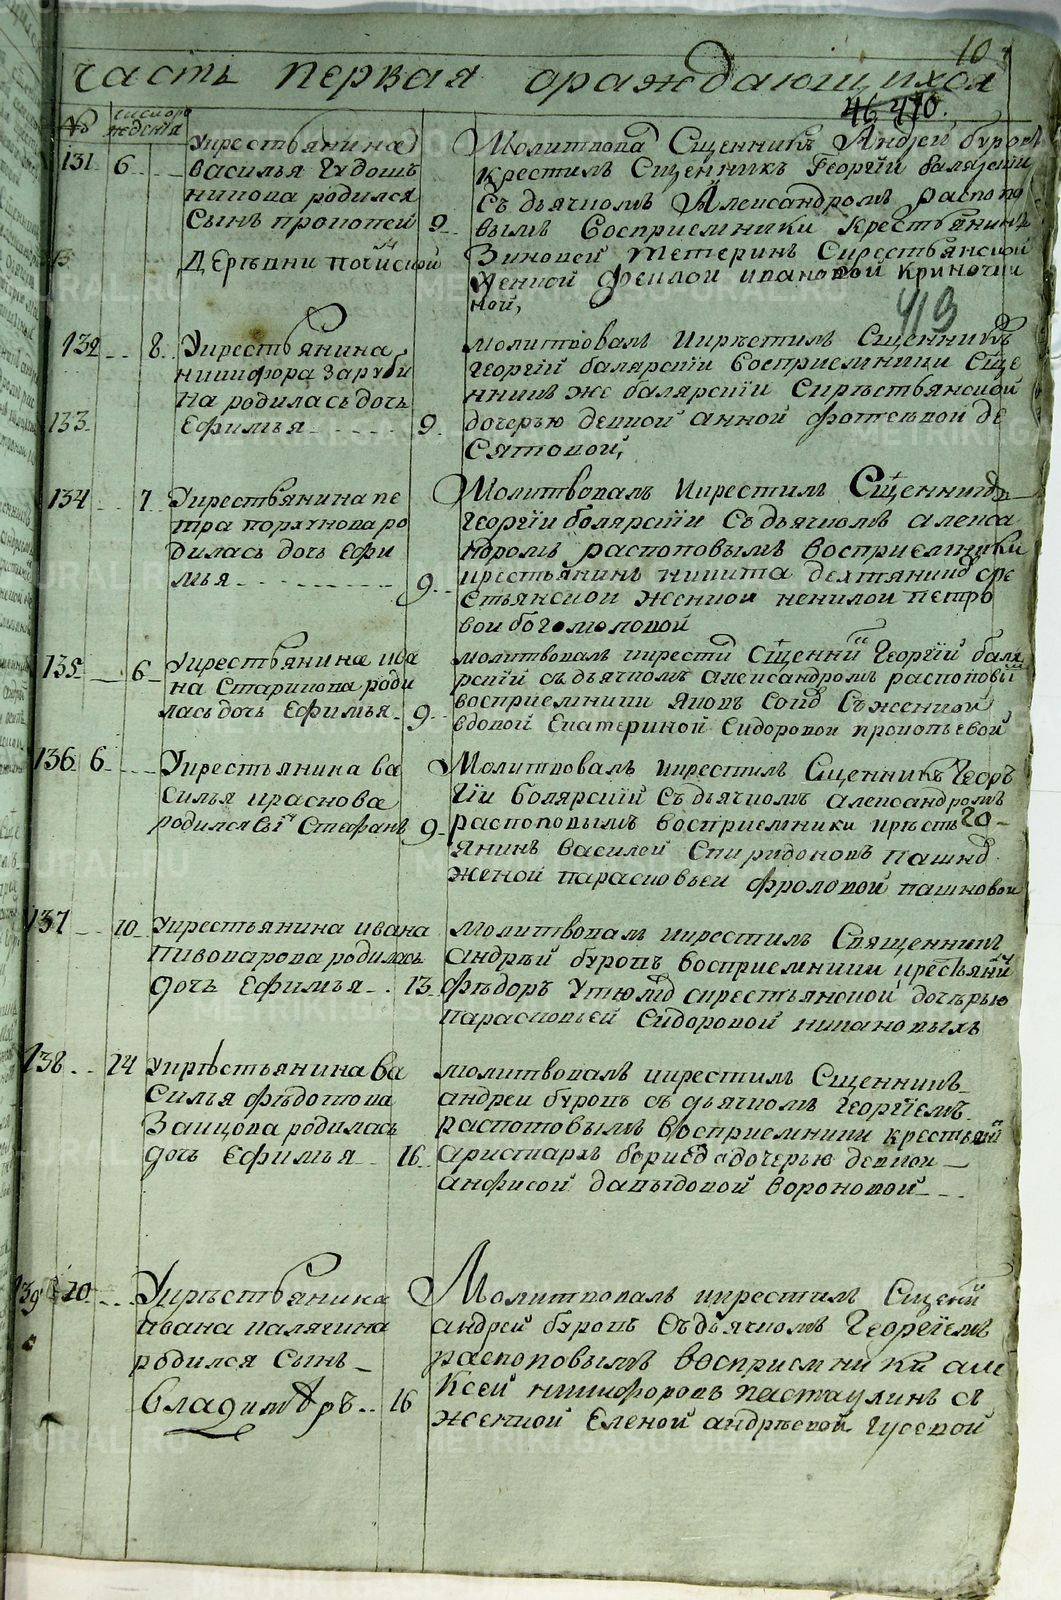 10
часть первая ораждающихся
46 410.
№
число рождения
131 6
Укрестьянина
василья
родился
сынъ прокопей 9
Молитвовал Сщенникъ Андрей буровъ
крестилъ Сщенникъ Георгiи балярсiи
Съ дьячкомъ Александромъ распопо
вымъ восприемники крестьянинъ
Зиновей тетеринъ Скрестьянской
женкой феклой ивановой
ной,
419
132 8
Укрестьянина
никифора заруби
на родилась дочь
Ефимья 9
молитвовалъ икръстилъ Сщенникъ
георгiй балярсiи восприемники Сще
нникъ же балярсiи Скръстьянской
дочерью девкой анной фотеевой де
сятовой,
133
134 7
Укрестьянина пе
тра поркунова ро
дилась дочь ефи
мья 9
Молитвовалъ икрестилъ Сщенникъ
георгiи болярсiи съ дьячкомъ алекса
ндромъ распоповымъ восприемники
крестьянинъ никита
стьянской женкой ненилой петро
вой богомоловой
135 6
Укрестьянина ива
на Старикова роди
лась дочь Ефимья 9
молитвовалъ икрести Сщенни Георгiй баля
рсiй съ дьячкомъ александромъ распоповы
восприемники яковъ Съженкой
вдовой Екатериной Сидоровой прокопьевой
136 6
Укрестьянина ва
силья краснова
родился сы Стефанъ 9
Молитвовалъ икрестилъ Сщенникъ Геор
гiи болярсiй Съ дьячкомъ александромъ
распоповымъ восприемники кръсть
янинъ василей Спиридоновъ пашко
женой парасковьеи фроловой пашковой
137 10
Укрестьянина ивана
пивоварова родилась
дочь Ефимья 13
молитвовалъ икрестилъ Священникъ
андръй буровъ восприемники крестьяни
фъдоръ скрестьянской дочърью
парасковьей Сидоровой
138 14
Укръстьянина ва
силья фъдотова
Заицова родилась
дочь Ефимья 16
молитвовалъ икрестилъ Сщенникъ
андреи буровъ съ дьячкомъ георгiемъ
распоповымъ восприемники крестьяни
аристархъ дочерью девкой
анфисой давыдовой вороновой
139 10
Укръстьянина
ивана калягина
родился Сынъ
Владимъръ 16
Молитвовалъ икрестилъ Сщени
андрей буровъ Съдьячкомъ Георгiемъ
распоповымъ восприемники але
ксей никифоровъ пастаухинъ съ
женкой Еленой андръевой гусевой